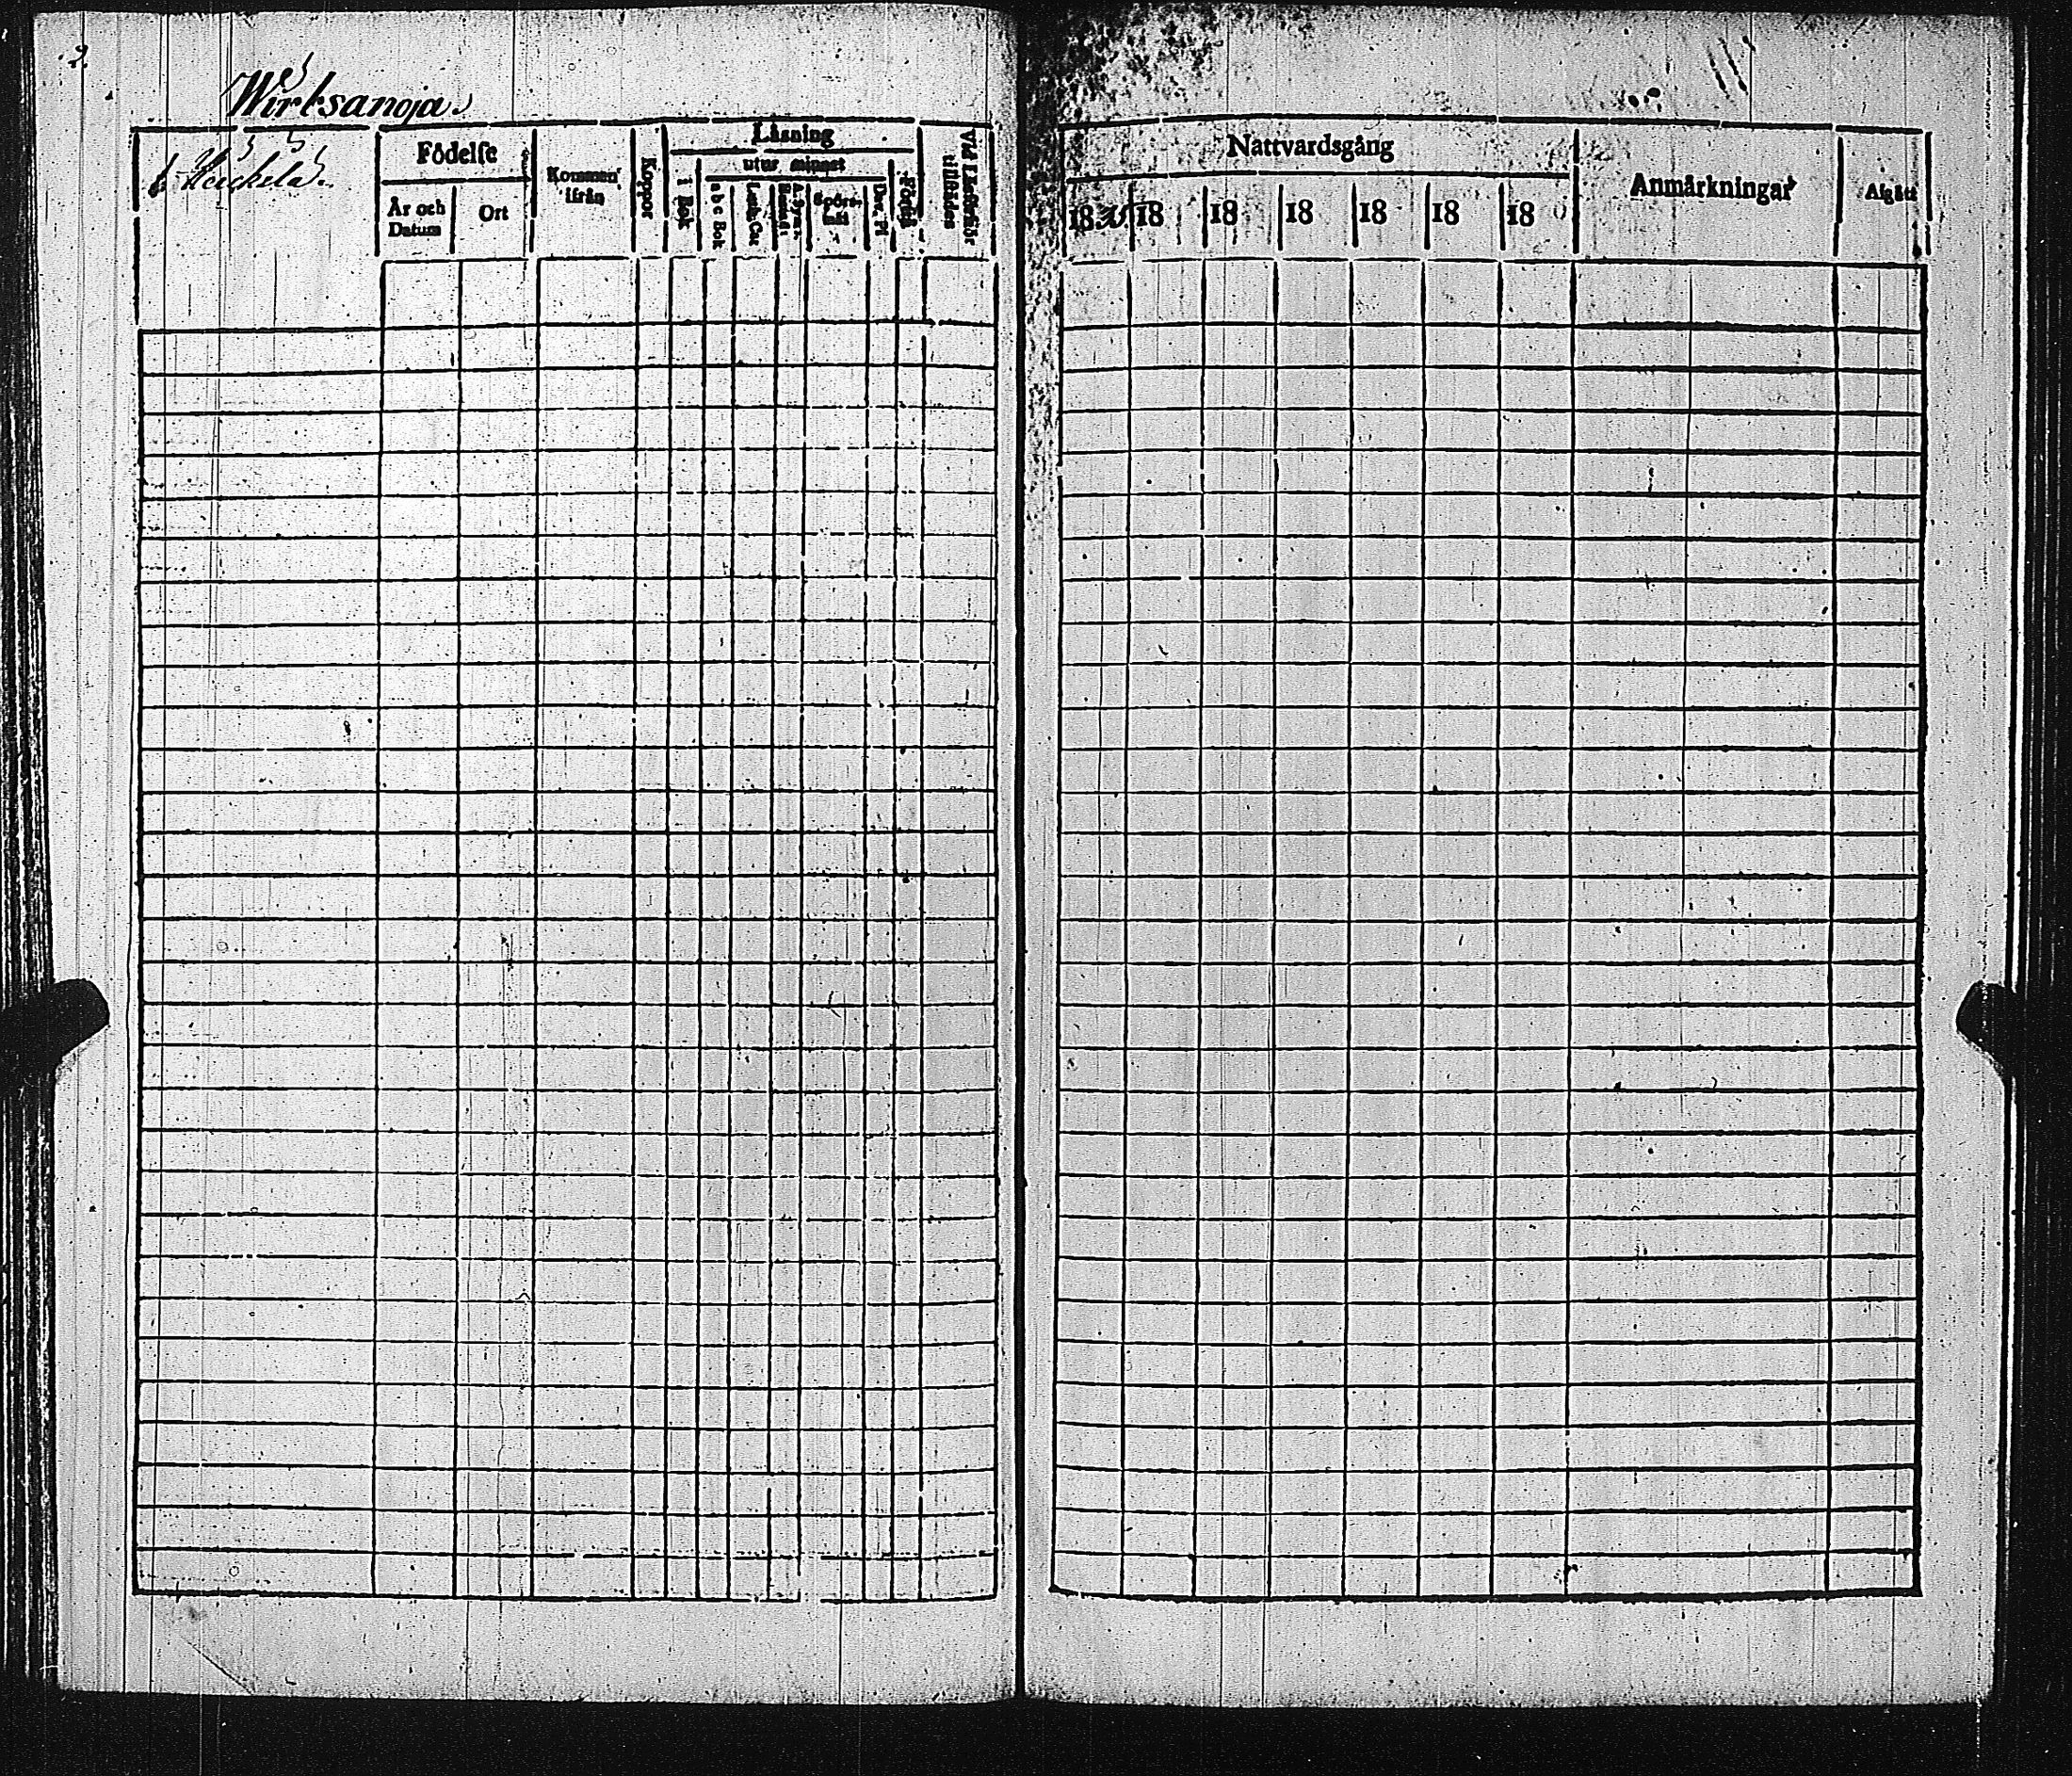 2.
Wirtsanoja.
Heickelä.
Födelse
År och Datum
Ort
Kommen ifrån
Koppor
Läsning
i Bok
utur minnet
a b c Bok
Luth. Cat.
Spörsmål
Dav. Ps.
Vid Läsförhör tillstädes
Nattvardsgång
18 18 18 18 18 18 18
Anmärkningar
Afgått